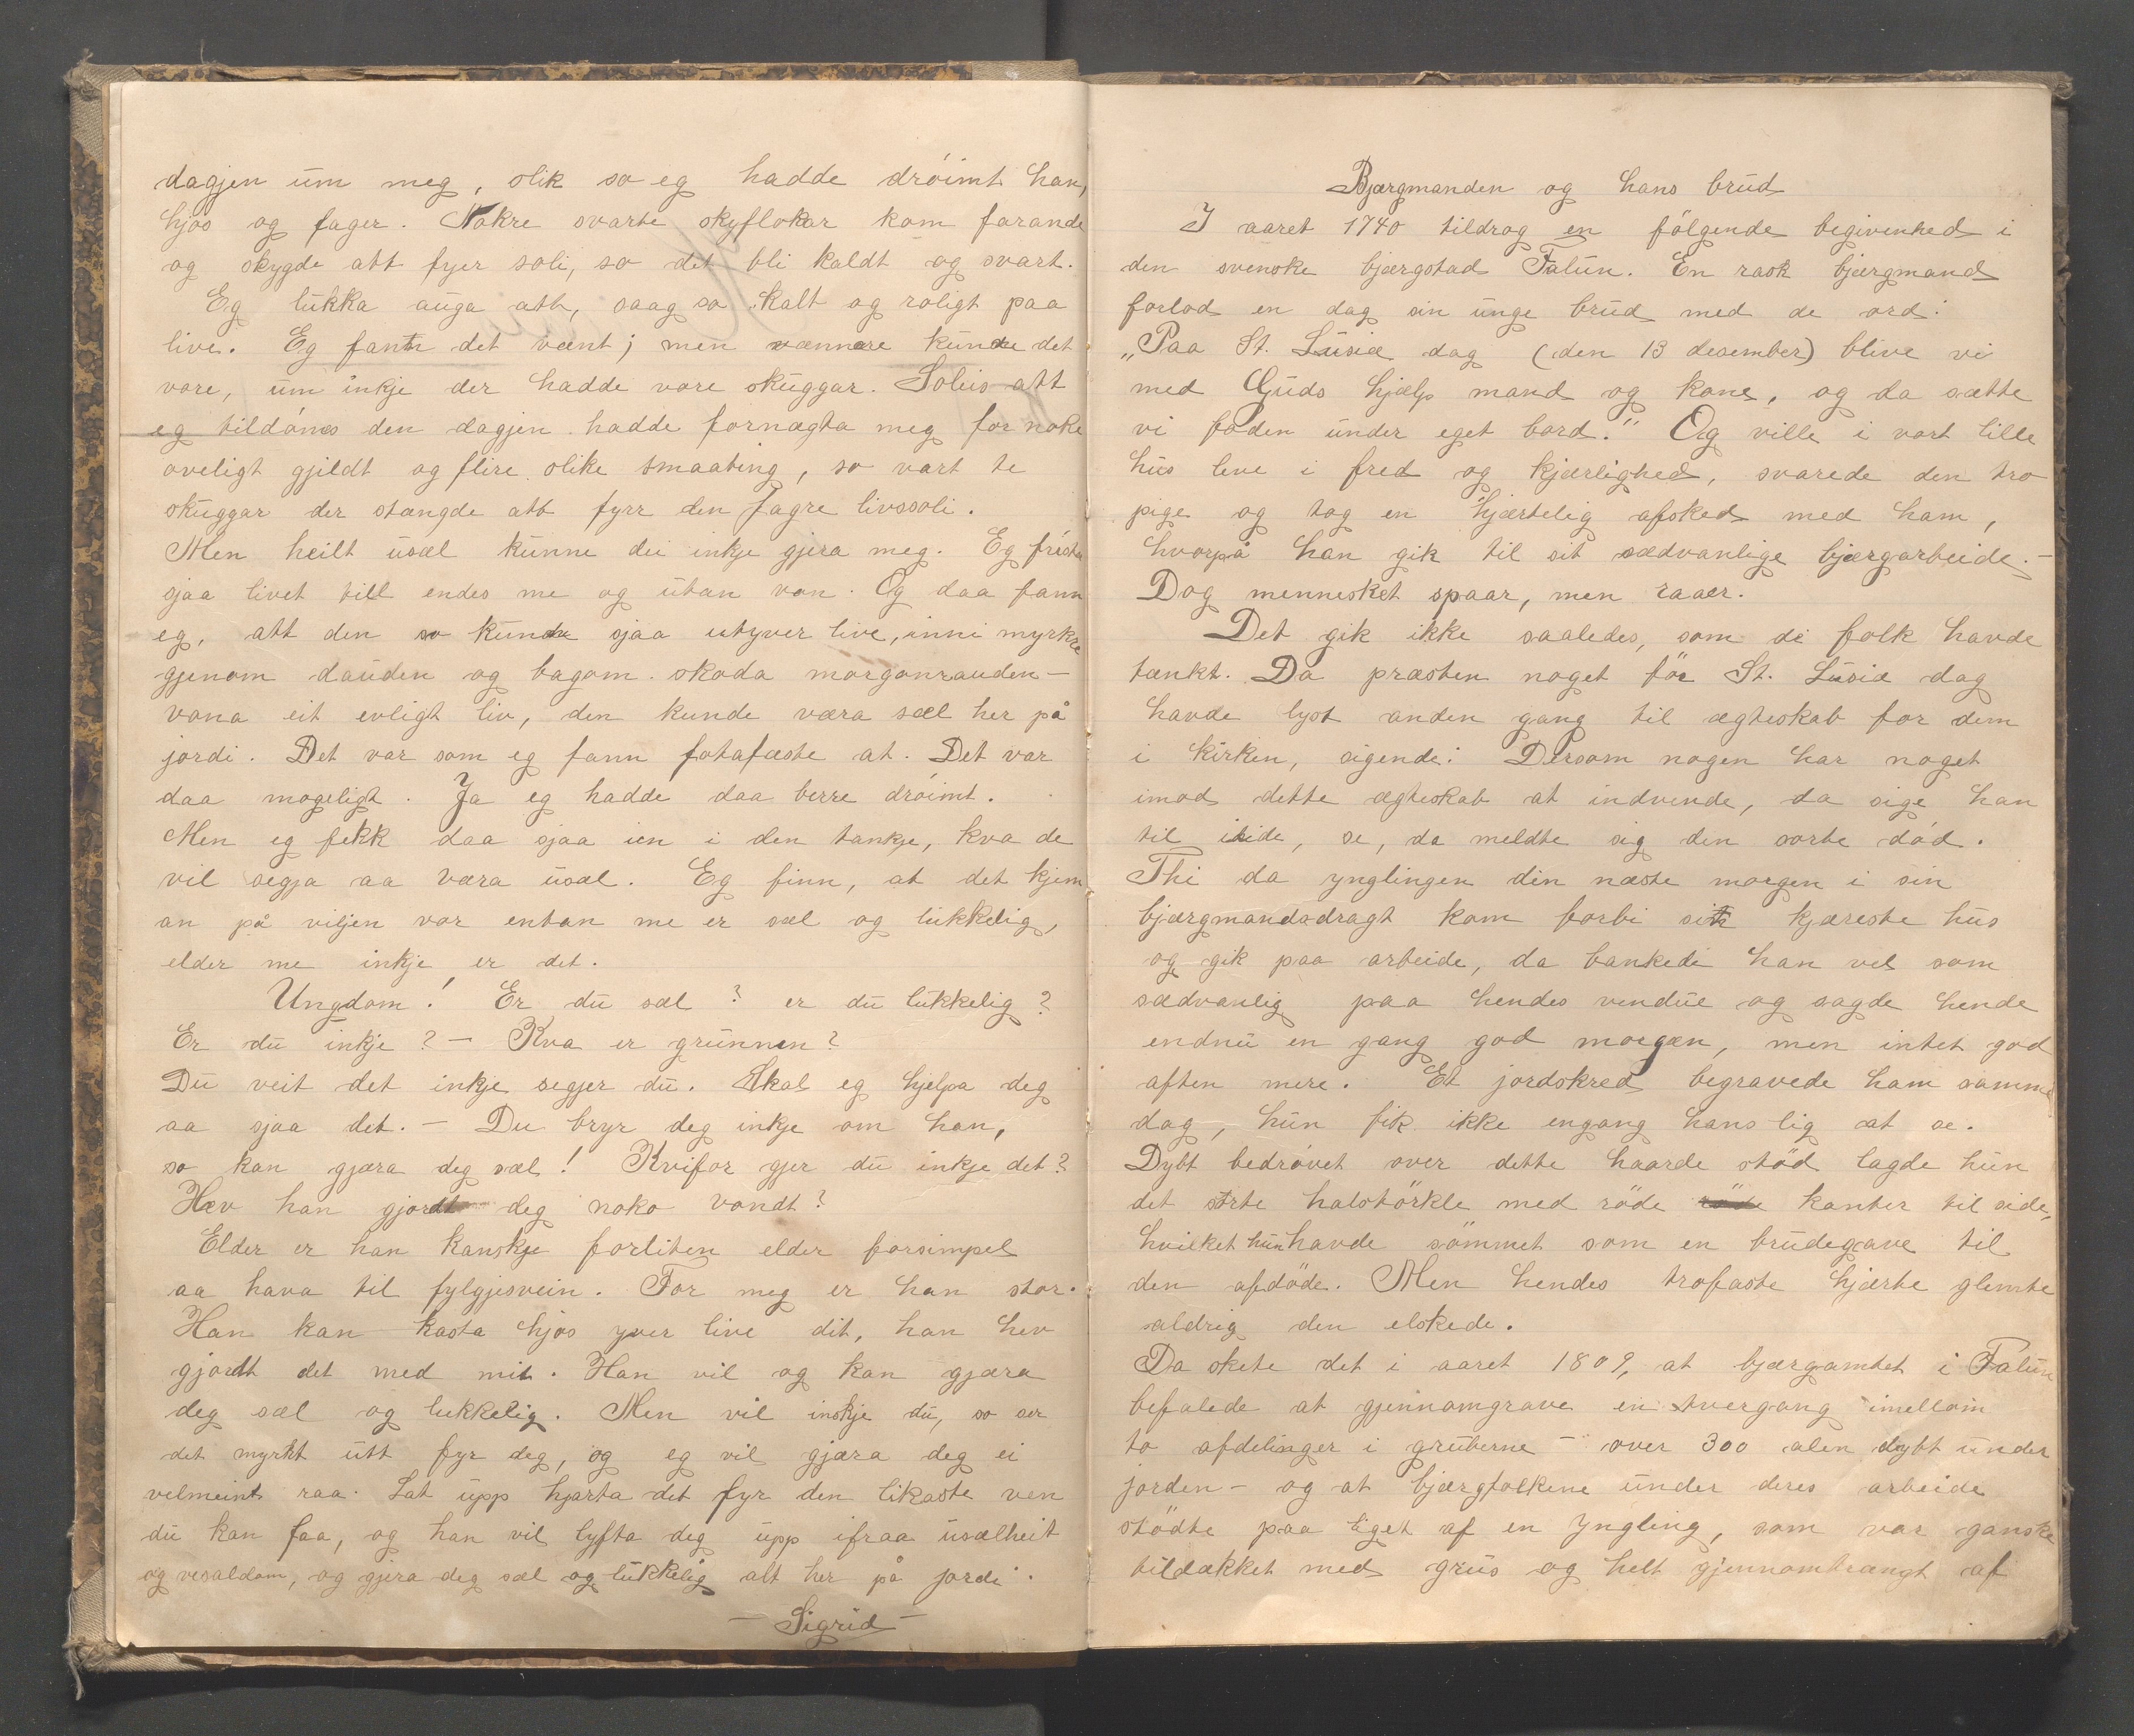 dagjen um meg, slik so eg hadde dröimt han,
hjos og fager. Nokre svarte skyflokar kom farande
og skygde att fyer soli, so det bli kaldt og svart.
Eg lukka auga att, saag so kalt og roligt paa
live. Eg fann det vænt; men vænnare kunde det
vore, um inkje der hadde vore skuggar. Soleis att
eg tildömes den dagjen hadde fornægta meg for noke
oveligt gjildt og flire slike smaating, so vart te
skuggar der stængde att fyrr den fagre livssoli.
Men heilt usæl kunne dei inkje gjera meg. Eg fristu
sjaa livet till endes me og utan von. Og daa fann
eg, att den so kunde sjaa utyver live, inni myrkre
gjenom dauden og bagom skoda morgonrauden -
vona eit evligt liv, den kunde være sæl her på
jordi. Det var som eg fann fotafæste at. Det var
daa mogeligt. Ja eg hadde daa berre dröimt.
Men eg fekk daa sjaa ien i den tankje, kva de
vil segja aa væra usæl. Eg finn, at det kjem
an på viljen vor entan me er sæl og lukkelig,
elder me inkje er det.
Ungdom! Er du sæl? er du lukkelig?
Er du inkje? - Kva er grunnen?
Du veit det inkje segjer du. Skal eg hjelpa deg
aa sjaa det. - Du bryr deg inkje om han,
so kan gjæra deg sæl! Kvifor gjer du inkje det?
Hæv han gjordt deg noko vondt?
Elder er han kanskje forliten elder forsimpel
aa hava til fylgjesvein. For meg er han stor.
Han kan kasta hjos yver live dit, han hev
gjordt det med mit. Han vil og kan gjæra
deg sæl og lukkelig. Men vil inskje du, so ser
det myrkt utt fyr deg, og eg vil gjæra deg ei
velmeint raa. Lat upp hjarta det fyr den likaste ven
du kan faa, og han vil lyfta deg upp ifraa usælheit
og vesaldom, og gjera deg sæl og lukkelig alt her på jordi.
- Sigrid -
Bjærgmanden og hans brud
I aaret 1740 tildrog en fölgende begivenhed i
den svenske bjærgstad Falun. En rask bjærgmand
forlod en dag sin unge brud med de ord:
"Paa St. Lusiæ dag (den 13 desember) blive vi
med Guds hjælp mand og kone, og da sætte
vi foden under eget bord." Og ville i vort lille
hus leve i fred og kjærlighed, svarede den tro
pige og tog en hjærtelig afsked med ham,
hvorpå han gik til sit sædvanlige bjærgarbeide. -
Dog mennesket spaar, men raaer.
Det gik ikke saaledes, som de folk havde
tænkt. Da præsten noget för St. Lusiæ dag
havde lyst anden gang til ægteskab for dem
i kirken, sigende: Dersom nogen har noget
imod dette ægteskab at indvende, da sige han
til itide, se, da meldte sig den sorte död.
Thi da ynglingen din næste morgen i sin
bjærgmandsdragt kom forbi sit kjæreste hus
og gik paa arbeide, da bankede han vel som
sædvanlig paa hendes vendue og sagde hende
endnu en gang god morgen, men intet god
aften mere. Et jordskred begravede ham samme
dag, hun fik ikke engang hans lig at se.
Dybt bedrövet over dette haarde stöd lagde hun
det sorte halstörkle med röde röde kanter til side,
hvilket hun havde sömmet som en brudegave til
den afdöde. Men hendes trofaste hjærte glemte
aldrig den elskede.
Da skete det i aaret 1809, at bjærgamtet i Falun
befalede at gjennamgrave en tvergang imellom
to afdelinger i gruberne - over 300 alen dybt under
jorden - og at bjærgfolkene under deres arbeide
stödte paa liget af en Yngling, som var ganske
tildækket med grus og helt gjennomtrængt af